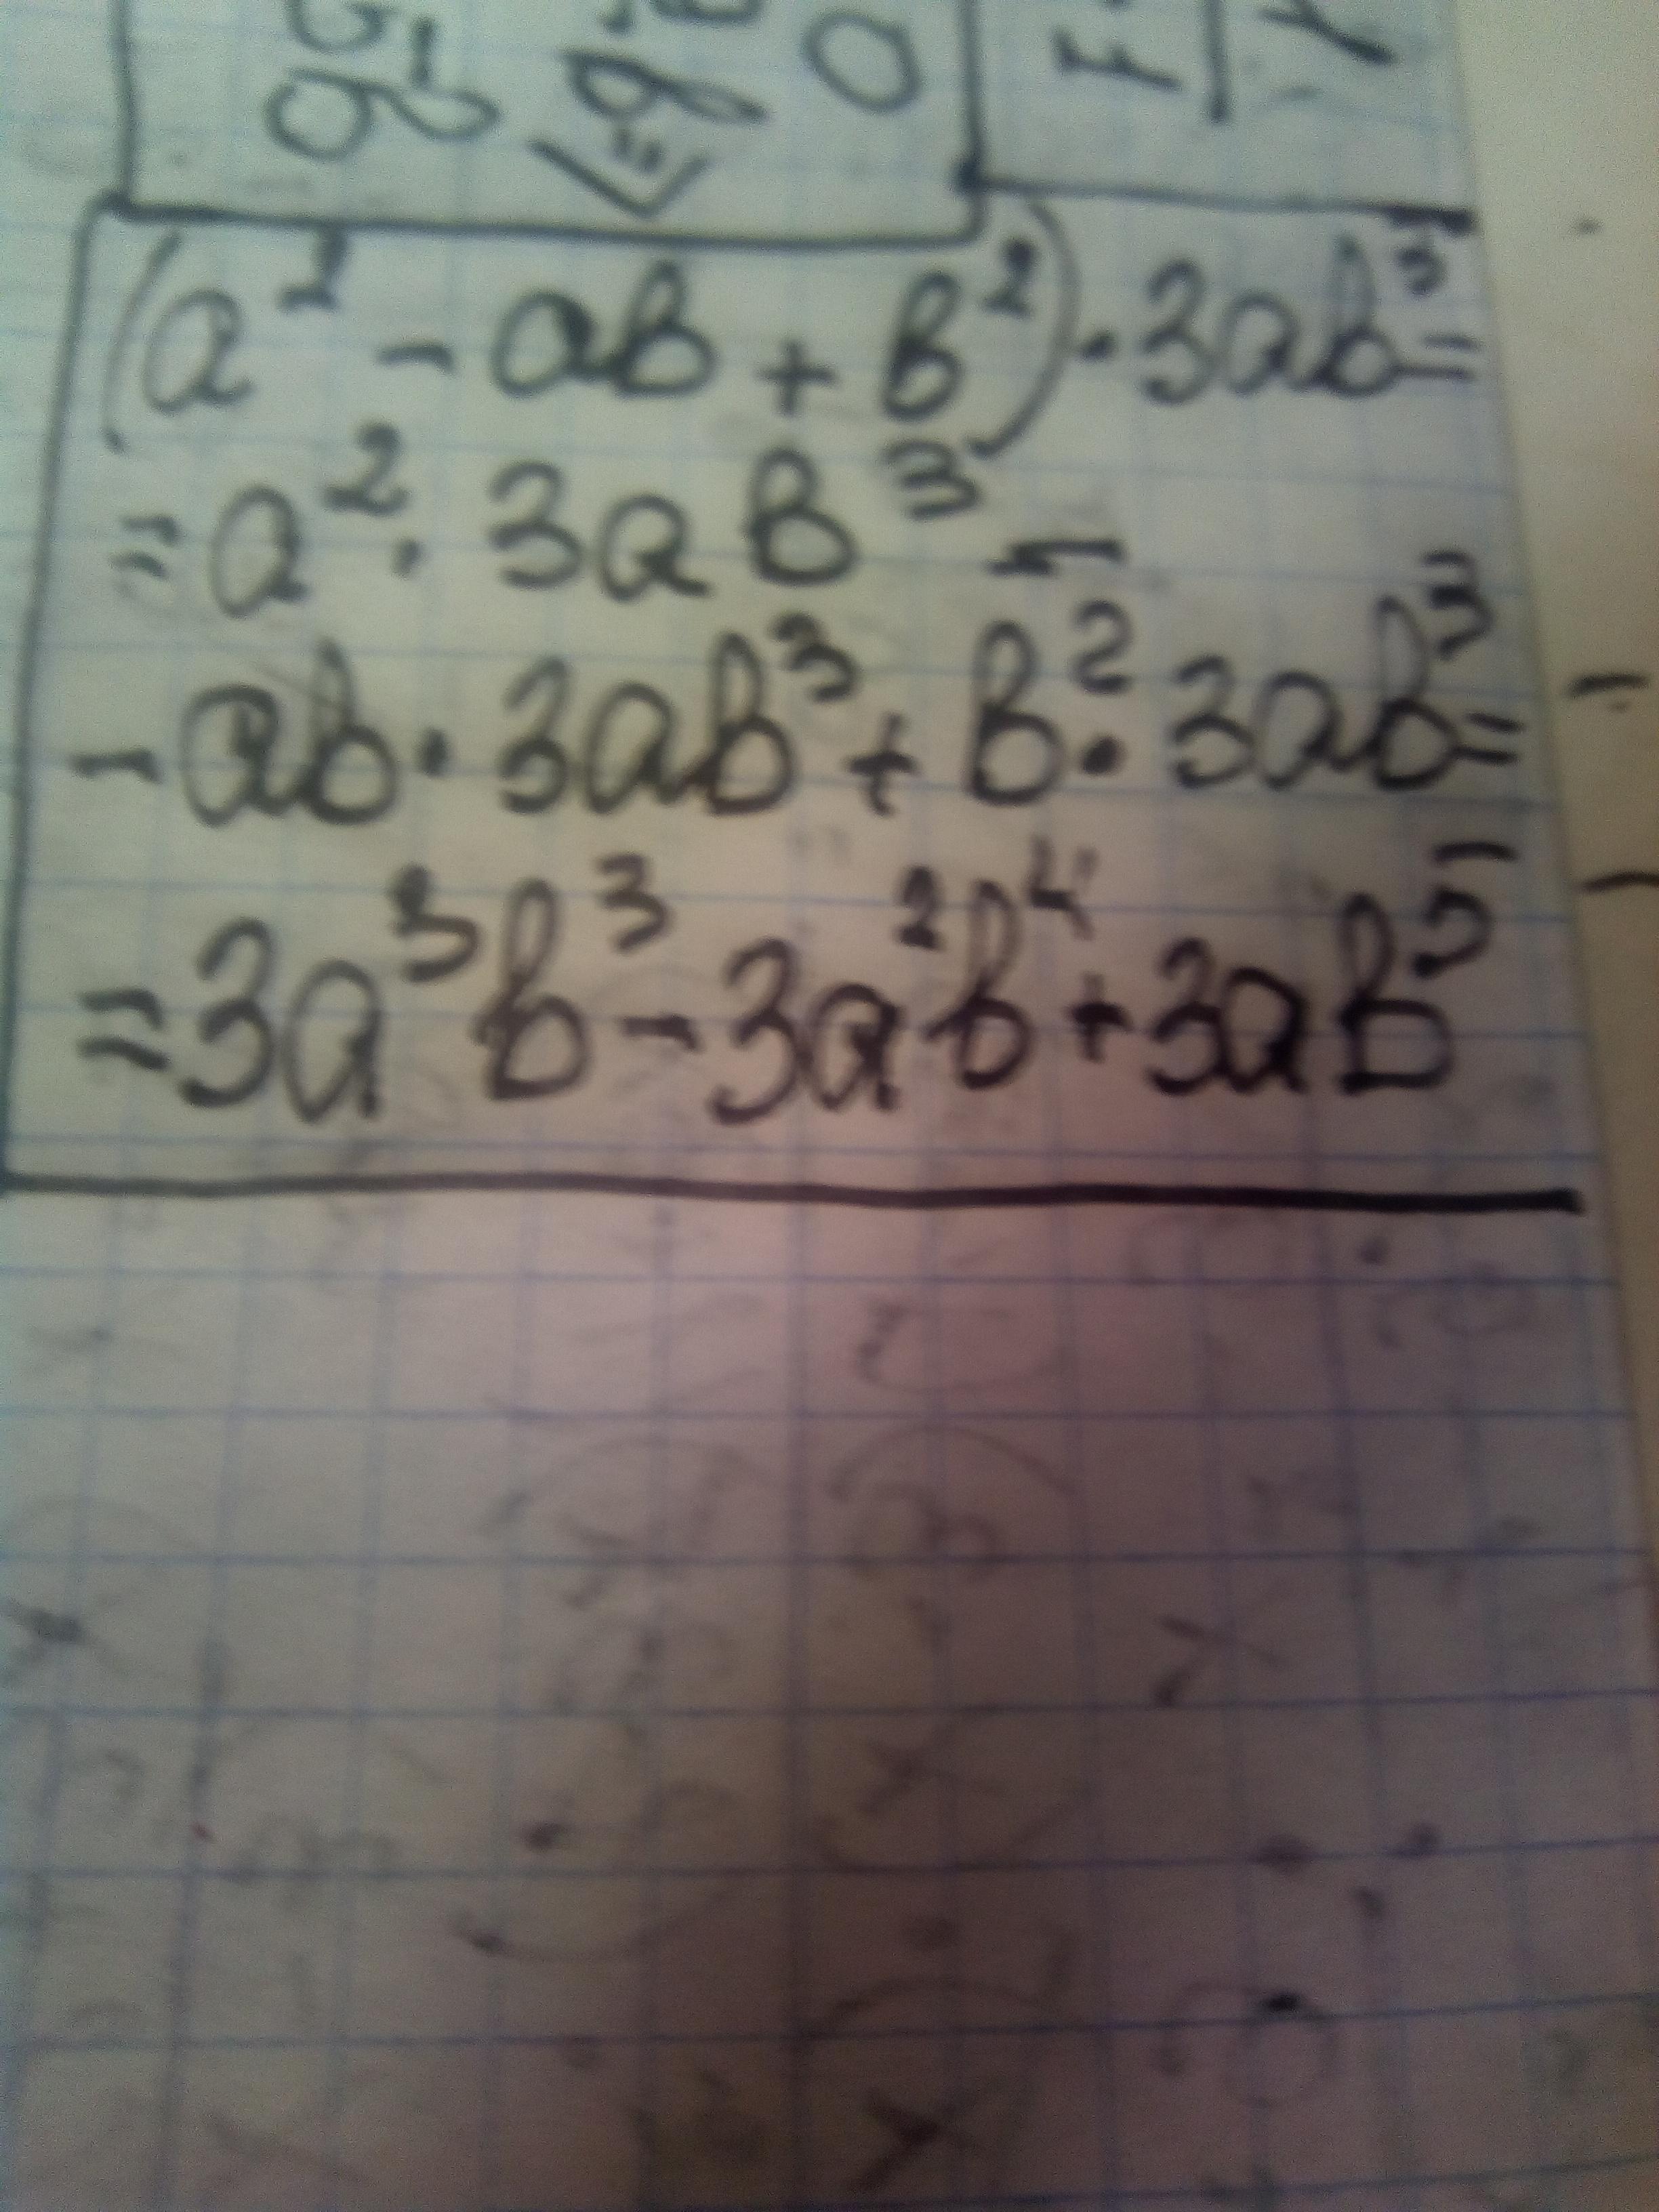 (a² - ab + b²) · 3ab³ =
= a² · 3ab³ -
- ab · 3ab³ + b² · 3ab³ =
= 3a³b³ - 3a²b⁴ + 3ab⁵